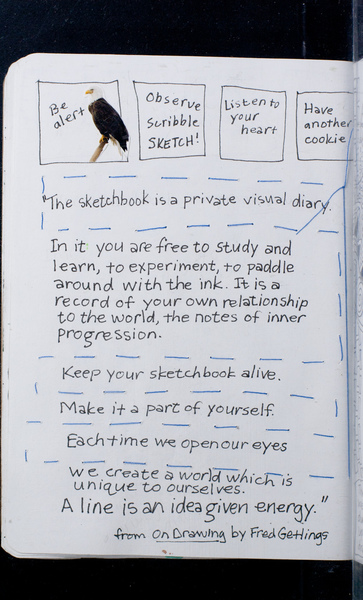 Be
alert
Observe
Scribble
SKETCH!
Listen to
your
heart
Have
another
cookie
"The sketchbook is a private visual diary.
In it you are free to study and
learn, to experiment, to paddle
around with the ink. It is a
record of your own relationship
to the world, the notes of inner
progression.
Keep your sketchbook alive.
Make it a part of yourself.
Each time we open our eyes
we create a world which is
unique to ourselves.
A line is an idea given energy."
from On Drawing by Fred Gettings